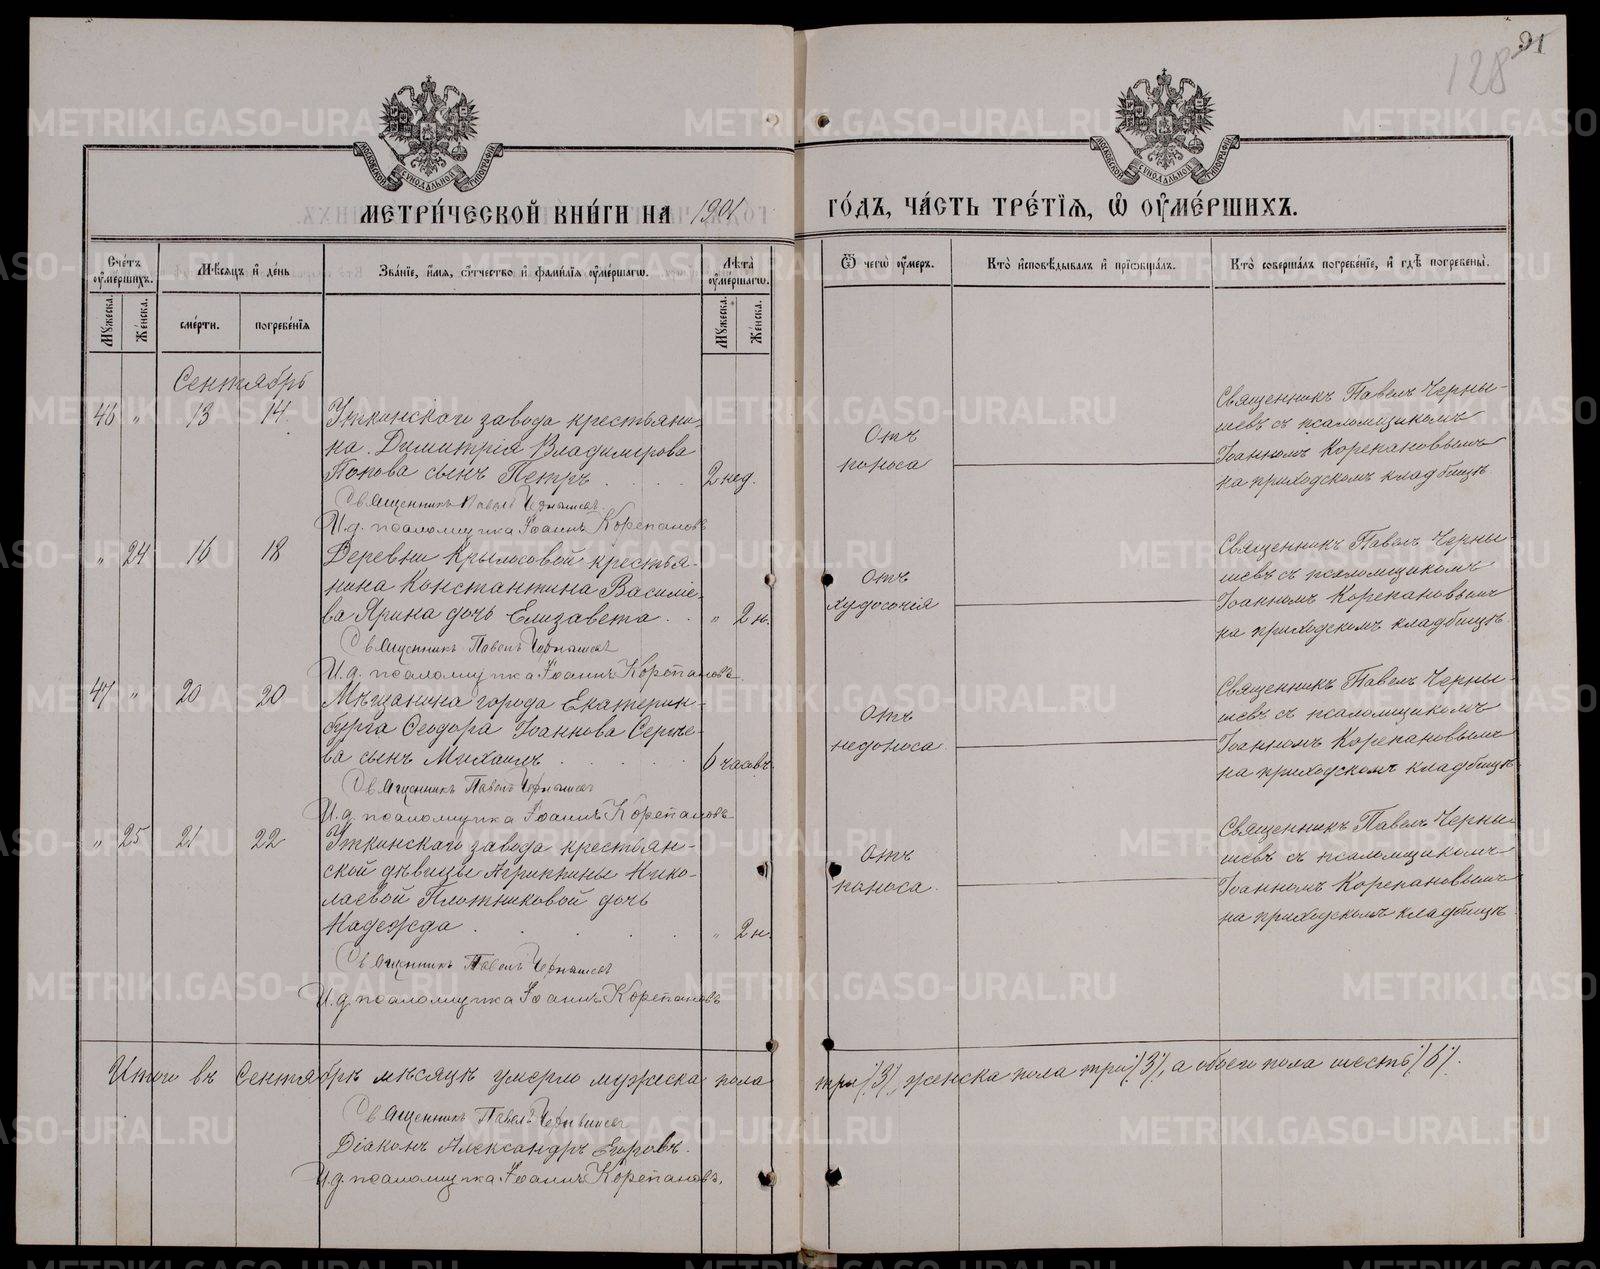 91
128
МЕТРИ́ЧЕСКОЙ КНИ́ГИ НА 1901
ГО́ДЪ, ЧА́СТЬ ТРЕ́ТІѦ, Ѡ҆ ОУ҆МЕ́РШИХЪ.
Сче́тъ оу҆ме́ршихъ.
Мѣ́сѧцъ и҆ де́нь
Зва́нїе, и҆́мѧ, ѻ҆́тчество и҆ фами́лїѧ оу҆ме́ршагѡ.
Лѣ́та оу҆ме́ршагѡ.
Ѿ чегѡ̀ оу҆́меръ.
Кто̀ и҆сповѣ́дывалъ и҆ прїѡбща́лъ.
Кто̀ соверша́лъ погребе́нїе, и҆ гдѣ̀ погребены̀.
Мꙋ́жеска.
Же́нска.
сме́рти.
погребе́нїѧ
Мꙋ́жеска.
Же́нска.
Сентябрь
46 " 13 14.
Уткинскаго завода крестьяни-
на Димитрія Владимірова
Попова сынъ Петръ . . . . 2 нед.
Священникъ Павелъ Чернышевъ
И.д. псаломщика Іоаннъ Корепановъ
Отъ
поноса
Священникъ Павелъ Черны-
шевъ съ псаломщикомъ
Іоанномъ Корепановымъ
на приходскомъ кладбищѣ
" 24 16 18
Деревни Крылосовой крестья-
нина Константина Василіе-
ва Ярина дочь Елизавета . . " 2 н.
Священникъ Павелъ Чернышевъ
И.д. псаломщика Іоаннъ Корепановъ
Отъ
худосочія
Священникъ Павелъ Черны-
шевъ съ псаломщикомъ
Іоанномъ Корепановымъ
на приходскомъ кладбищѣ
47 " 20 20
Мѣщанина города Екатерин-
бурга Ѳеодора Іоаннова Сергѣе-
ва сынъ Михаилъ . . . . . 6 часовъ
Священникъ Павелъ Чернышевъ
И.д. псаломщика Іоаннъ Корепановъ
Отъ
недоноса
Священникъ Павелъ Черны-
шевъ съ псаломщикомъ
Іоанномъ Корепановымъ
на приходскомъ кладбищѣ
" 25 21 22
Уткинскаго завода крестьян-
ской дѣвицы Агриппины Нико-
лаевой Плотниковой дочь
Надежда . . . . " 2 н.
Священникъ Павелъ Чернышевъ
И.д. псаломщика Іоаннъ Корепановъ
Отъ
поноса.
Священникъ Павелъ Черны
шевъ съ псаломщикомъ
Іоанномъ Корепановымъ
на приходскомъ кладбищѣ
Итого въ Сентябрѣ мѣсяцѣ умерло мужеска пола
три /3/, женска пола три /3/, а обоего пола шесть /6/.
Священникъ Павелъ Чернышевъ
Діаконъ Александръ Егоровъ.
И.д. псаломщика Іоаннъ Корепановъ.